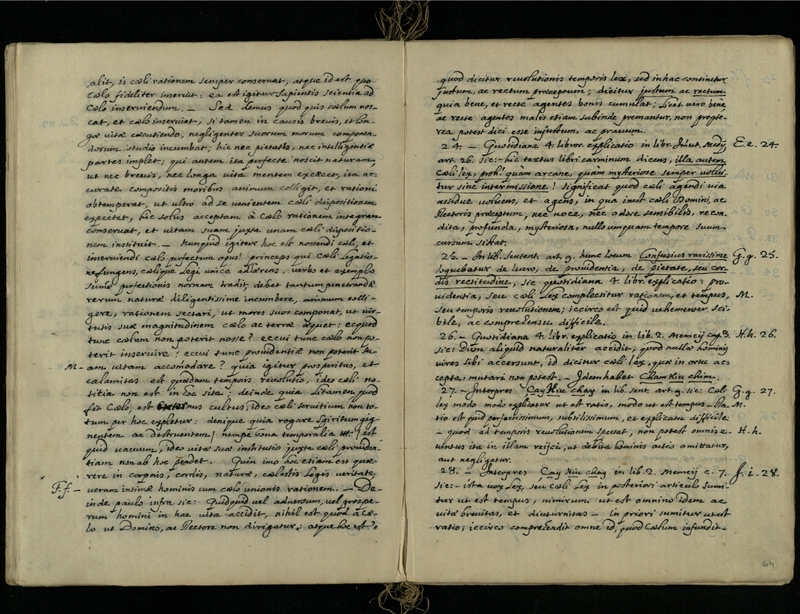 alit, is cœli rationem semper conservat, atque id est quo
cœlo fideliter inserviat: ea est igitur Sapientis scientia ad
cœlo inserviendum. — Sed demus quod quis cœlum nos-
cat, et cœlo inserviat, si tamen in causis brevis, et lon-
gæ vitæ cæcutiendo, negligenter suorum morum componen-
dorum studio incumbat; hic nec pietatis, nec intelligentiæ
partes implet; qui autem ita perfecte noscit naturam,
ut nec brevis, nec longa vita mentem excæcet, ita ac-
curate compositis moribus animum colligit, et rationi
obtemperat, ut ultro ad se venientem cœli dispositionem
expectet, hic solus acceptam à Cœlo rationem integram
conservat, et vitam suam juxta unam cœli dispositio-
nem instituit. — Nunquid igitur hoc est noscendi cœli, et
inserviendi cœlo perfectum opus? princeps qui cœli legatio-
ne fungens, cœlique legi unica adhærens, verbo et exemplo
summæ perfectionis normam tradit, debet tantum penetrandæ
rerum naturæ diligentissime incumbere, animum colli-
gere, rationem sectari, ut mores suos componat, ut vir-
tutis suæ magnitudinem cœlo ac terræ æquet: ecquid
tunc cœlum non poterit nosse? eccui tunc cœlo non po-
terit inservire? eccui tunc providentiæ non poterit su-
M. — am vitam accomodare? quia igitur prosperitas, et
calamitas est quædam temporis revolutio, ideo cœli no-
titia non est in hoc sita; deinde quia Litamen quod
fit Cœlo, est cultus, ideo cœli servitium non to-
tum per hoc expletur: denique quia rogare Spiritum gig-
nentem ac destruentem / nempe bona temporalia / est
quid vacuum, ideo vitæ suæ institutio juxta cœli provide-
tiam non ab hoc pendet. — Quin imo hoc etiam est quæ-
rere in corporis, cordis, naturæ, cœlestis Legis veritate
F.f. — veram intimæ hominis cum cœlo unionis rationem. — De-
inde paulo infra sic: Quidquid vel adversum, vel prospe-
rum homini in hac vita accidit, nihil est quod à cœ-
lo ut Domino, ac Rectore non dirigatur: atque hoc est,
quod dicitur revolutionis temporis lex, sed in hac continetur
justum, ac rectum præceptum; dicitur justum ac rectum,
quia bene, et recte agentes bonis cumulat; licet vero bene,
ac recte agentes malis etiam subinde premantur, non propte-
rea potest dici esse injustum, ac pravum.
24. — Quotidiana 4. libror. explicatio in lib. Inmut. Medij E.e. 24.
art. 26. sic: hic textus libri carminum dicens, illa autem
Cœli lex, proh! quam arcane, quam mysteriose semper volvi-
tur sine intermissione! significat quod cœli agendi via
assidue volvens, et agens, in qua inest cœli Domini, ac
Rectoris præceptum, nec voce, nec odore sensibilis, recon-
dita, profunda, mysteriosa, nullo unquam tempore suum
cursum sistat.
25. — In lib. Sentent. art. 9. hunc locum Confusius rarissime G.g. 25.
loquebatur de lucro, de providentia, de pietate, seu cor-
dis rectitudine, sic quotidiana 4. libr. explicatio: pro-
videntia, seu cœli lex complectitur rationem, et tempus, M.
seu temporis revolutionem; iccirco est quid vehementer sci-
bile, ac comprehensu difficile.
26. — Quotidiana 4. libr. explicatio in lib. 2. Memcij cap. 3. H.h. 26.
sic: Dum aliquid naturaliter accidit, quod nullæ hominis
vires sibi accersunt, id dicitur cœli lex, quæ in ortu ac-
cepta, mutari non potest. — Idem habet Cham Kiu chim.
27. — Interpres Cay Hiu Chay in lib. sent. art. 9. sic: Cœli G.g. 27.
lex modo explicatur ut est ratio, modo ut est tempus. — Ra- M.
tio est quid perfectissimum, subtilissimum, et explicatu difficile.
— quod ad temporis revolutionem spectat, non potest omnis e- H.h.
ventus ita in illam reijci, ut debita hominis actio omittatur,
aut negligatur.
28. — Interpres Cay Hiu Chay in lib. 2. Memcij c. 7. J.i. 28.
sic: ista vox lex, seu cœli Lex in posteriori articulo sumi-
tur ut est tempus, nimirum ut est omnino idem ac
vitæ brevitas, et diuturnitas — in priori sumitur ut est
ratio; iccirco comprehendit omne id, quod Cœlum infundit —
64